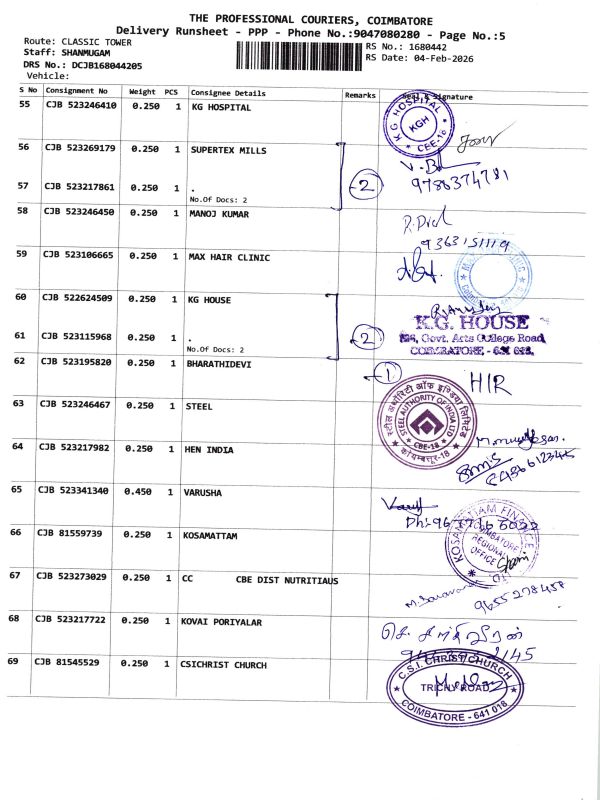 THE PROFESSIONAL COURIERS, COIMBATORE
Delivery Runsheet - PPP - Phone No.:9047080280 - Page No.:5
Route: CLASSIC TOWER
Staff: SHANMUGAM
DRS No.: DCJB168044205
Vehicle:
RS No.: 1680442
RS Date: 04-Feb-2026
S No Consignment No Weight PCS Consignee Details Remarks Seal & Signature
55 CJB 523246410 0.250 1 KG HOSPITAL
KG HOSPITAL
KGH
CBE-18
56 CJB 523269179 0.250 1 SUPERTEX MILLS
57 CJB 523217861 0.250 1 .
No.Of Docs: 2
2
9786374781
58 CJB 523246450 0.250 1 MANOJ KUMAR
9363151119
59 CJB 523106665 0.250 1 MAX HAIR CLINIC
60 CJB 522624509 0.250 1 KG HOUSE
61 CJB 523115968 0.250 1 .
No.Of Docs: 2
2
K.G. HOUSE
Govt. Arts College Road,
COIMBATORE - 641 018.
62 CJB 523195820 0.250 1 BHARATHIDEVI
1
HIR
63 CJB 523246467 0.250 1 STEEL
स्टील अथॉरिटी ऑफ इण्डिया लिमिटेड
STEEL AUTHORITY OF INDIA LTD
CBE-18
कोयम्बत्तूर-18
64 CJB 523217982 0.250 1 HEN INDIA
65 CJB 523341340 0.450 1 VARUSHA
66 CJB 81559739 0.250 1 KOSAMATTAM
KOSAMATTAM FINANCE LTD
COIMBATORE
REGIONAL
OFFICE
67 CJB 523273029 0.250 1 CC CBE DIST NUTRITIAUS
9655278458
68 CJB 523217722 0.250 1 KOVAI PORIYALAR
69 CJB 81545529 0.250 1 CSICHRIST CHURCH
C.S.I. CHRIST CHURCH
TRICHY ROAD
COIMBATORE - 641 018